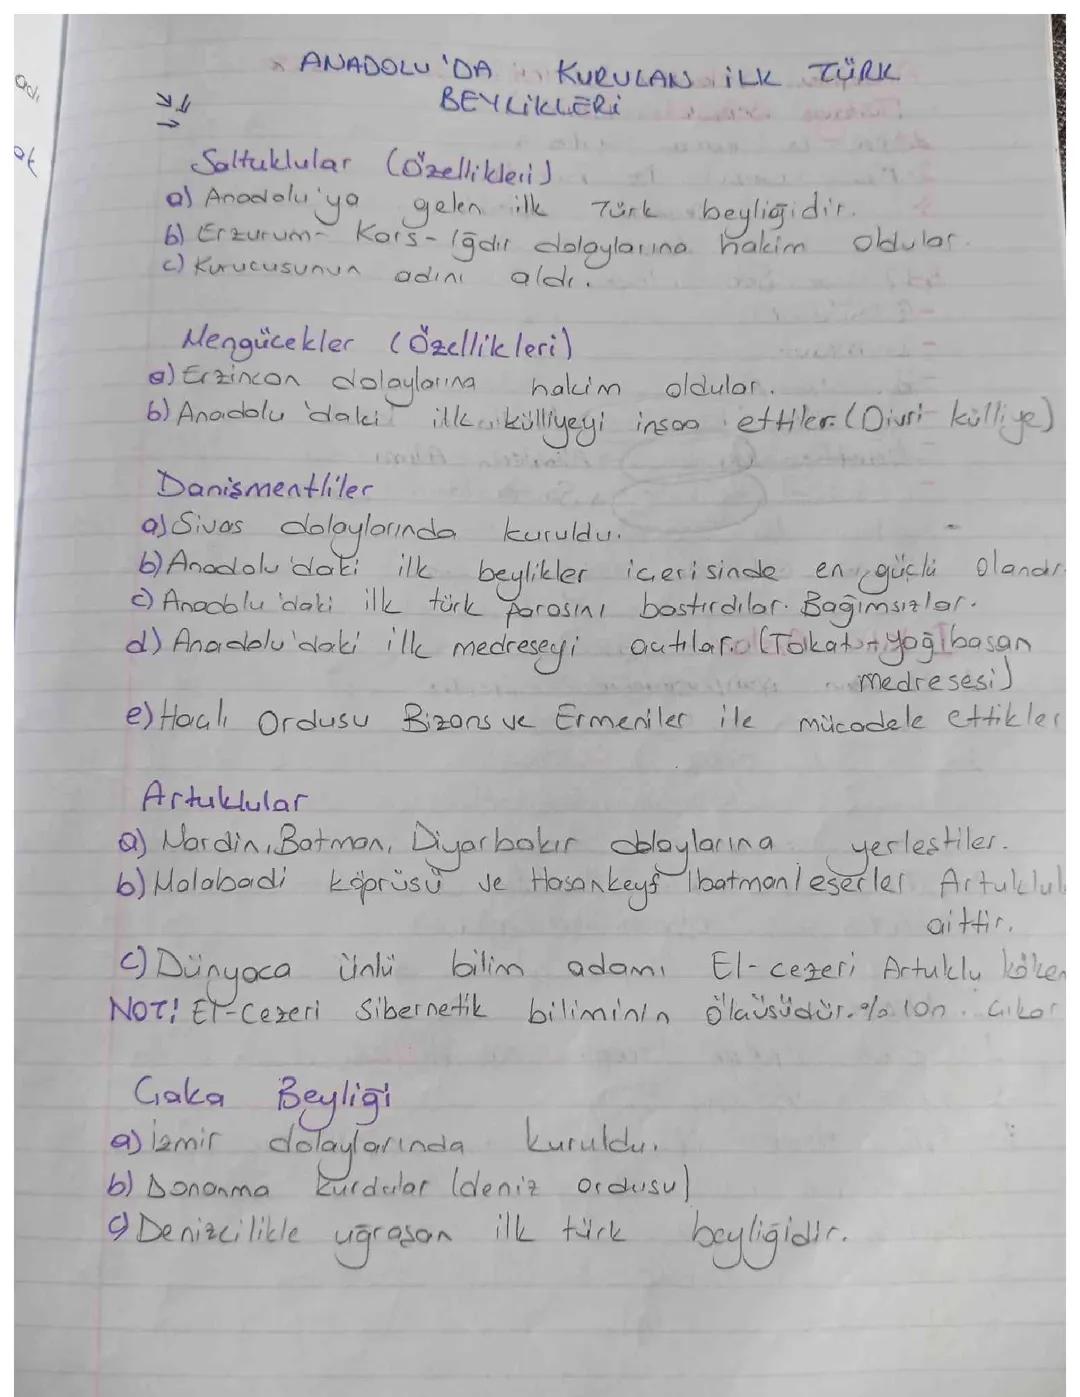 ANADOLU'DA KURULAN İLK TÜRK
BEYLİKLERİ
Saltuklular (Özellikleri)
a) Anadolu'ya gelen ilk Türk beyliğidir.
b) Erzurum- Kars- Iğdır dolaylarına hakim oldular.
c) Kurucusunun adını aldı.
Mengücekler (Özellikleri)
a) Erzincan dolaylarına hakim oldular.
b) Anadolu'daki ilk külliyeyi insaa ettiler. (Divri külliye)
Danişmentliler
a) Sivas dolaylarında kuruldu.
b) Anadolu'daki ilk beylikler içerisinde en güçlü olandır
c) Anadolu'daki ilk türk parasını bastırdılar. Bağımsızlar.
d) Anadolu'daki ilk medreseyi açtılar. (Tokat → yağıbasan
medresesi)
e) Haçlı Ordusu Bizans ve Ermeniler ile mücadele ettikler
Artuklular
a) Mardin, Batman, Diyarbakır dolaylarına yerleştiler.
b) Malabadi köprüsü ve Hasankeyf (batman) eserler Artuklul
aittir.
c) Dünyaca ünlü bilim adamı El-cezeri Artuklu köken
NOT! El-Cezeri Sibernetik biliminin ölçüsüdür. % 100 çıkar
Çaka Beyliği
a) İzmir dolaylarında kuruldu.
b) Donanma kurdular (deniz ordusu)
c) Denizcilikle uğraşan ilk türk beyliğidir.